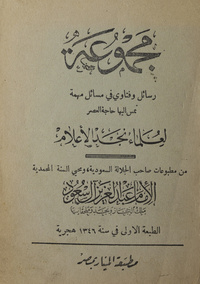 مجموعة
رسائل وفتاوي في مسائل مهمة
تمس اليها حاجة العصر
لعلماء نجد الأعلام
من مطبوعات صاحب الجلالة السعودية، ومحيي السنة المحمدية
الإمام عبد العزيز آل سعود
ملك الحجاز ونجد وملحقاتها
الطبعة الاولى في سنة ١٣٤٦ هجرية
مطبعة المنار بمصر